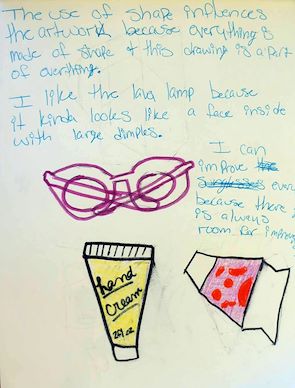 The use of shape influences
the artwork because everything is
made of shape & this drawing is a part
of everything.
I like the lava lamp because
it kinda lookes like a face inside
with large dimples.
I can
improve the
because there
is always
room for improv
hand
cream
2 fl oz